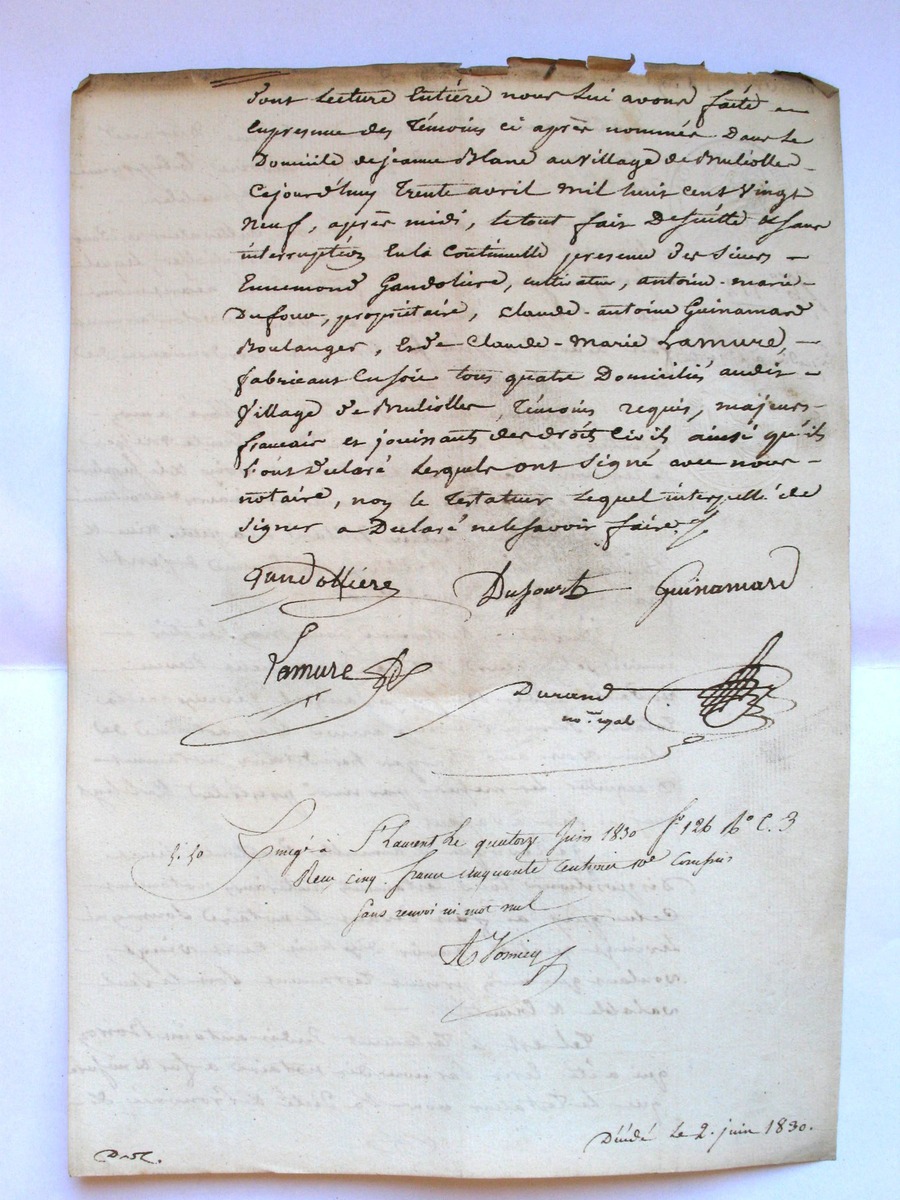 dont Lecture Entière nous lui avons faite
En presence des Témoins ci après nommés Dans le
Domicile de jeanne Blanc au Village de Bruliolles
Cejourd'huy Trente avril mil huit cent Vingt
neuf, après midi, le tout fait De suitte & sans
interruption En la Continuelle presence des Sieurs
Ennemond Gandoliere, cultivateur, antoine-marie
Dufour, propriétaire, Claude-antoine Guinamard
Boulanger, Et de Claude-Marie Lamure,
fabricant En soie tous quatre Domiciliés audit
Village de Bruliolles, Témoins requis, majeurs
francais et jouissants des droits Civils ainsi qu'ils
L'ont Declaré Lesquels ont Signé avec nous
notaire, non le Testateur Lequel interpellé de
signer a Declaré ne le savoir faire
Gandolliere Dufourt Guinamard
Lamure
Durand
no.re royal
5. 50 Enregé à St Laurent le quatorze Juin 1830 fo 126 Ro C. 3
Reçu cinq francs cinquante centimes Dme Compris
Sans renvoi ni mot nul
Décédé Le 2. juin 1830.